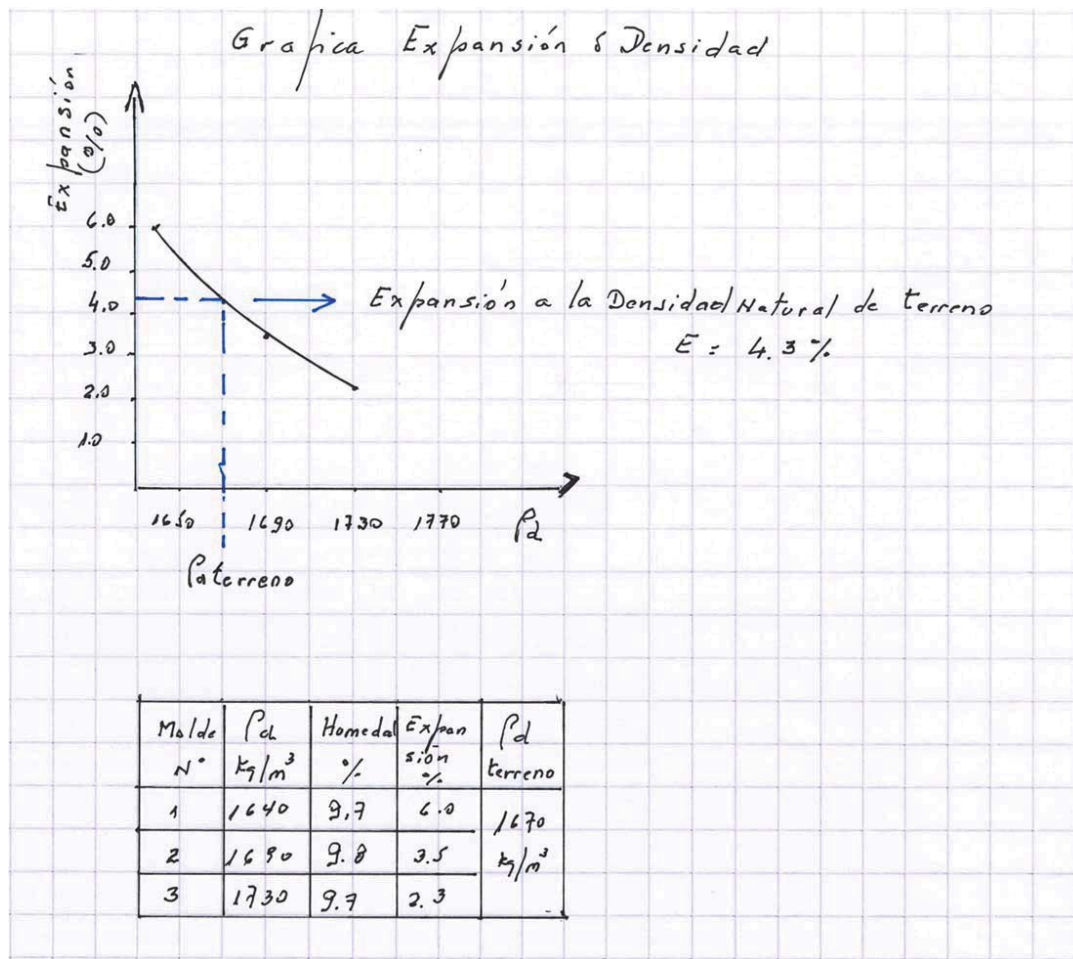 Grafica Expansión δ Densidad
Expansión
(%)
6.0
5.0
4.0
3.0
2.0
1.0
Expansión a la Densidad Natural de terreno
E = 4.3 %
1650 1690 1730 1770 ρd
ρd terreno
Molde N° ρd kg/m³ Homedad % Expansión % ρd terreno
1 1640 9.7 6.0 1670 kg/m³
2 1690 9.8 3.5
3 1730 9.7 2.3